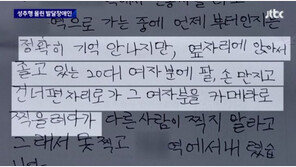 성추행 몰린 발달장애인
jtbc
역으로 가는 중에 언제부터인지는
정확히 기억 안나지만, 옆자리에 앉아서
졸고 있는 20대 여자분에 팔, 손 만지고
건너편 자리로가 그 여자분을 카메라로
찍을려다가 다른사람이 찍지 말라고
그래서 못찍고 역에서 내렸습